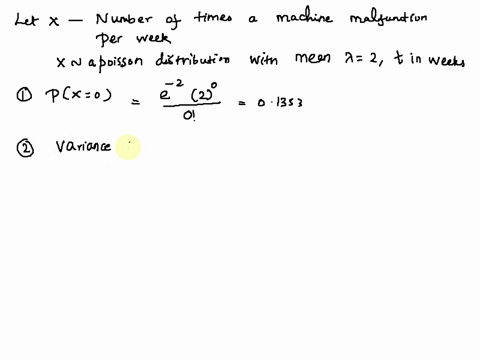 Let x — Number of times a machine malfunction
per week
x ~ a poisson distribution with mean λ = 2, t in weeks
① P(x=0) = e^-2 (2)^0 / 0! = 0.1353
② Variance